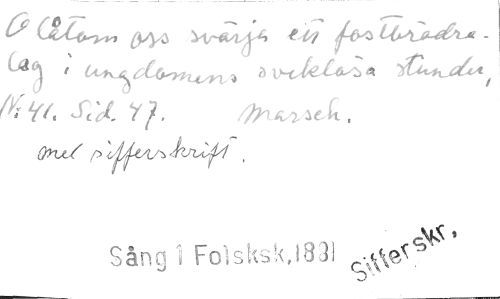 O låtom oss svärja ett fostbrödra-
lag i ungdomens sveklösa stunder,
No 41. Sid. 47. Marsch.
med sifferskrift.
Sång i Folsksk,1881
Sifferskr,